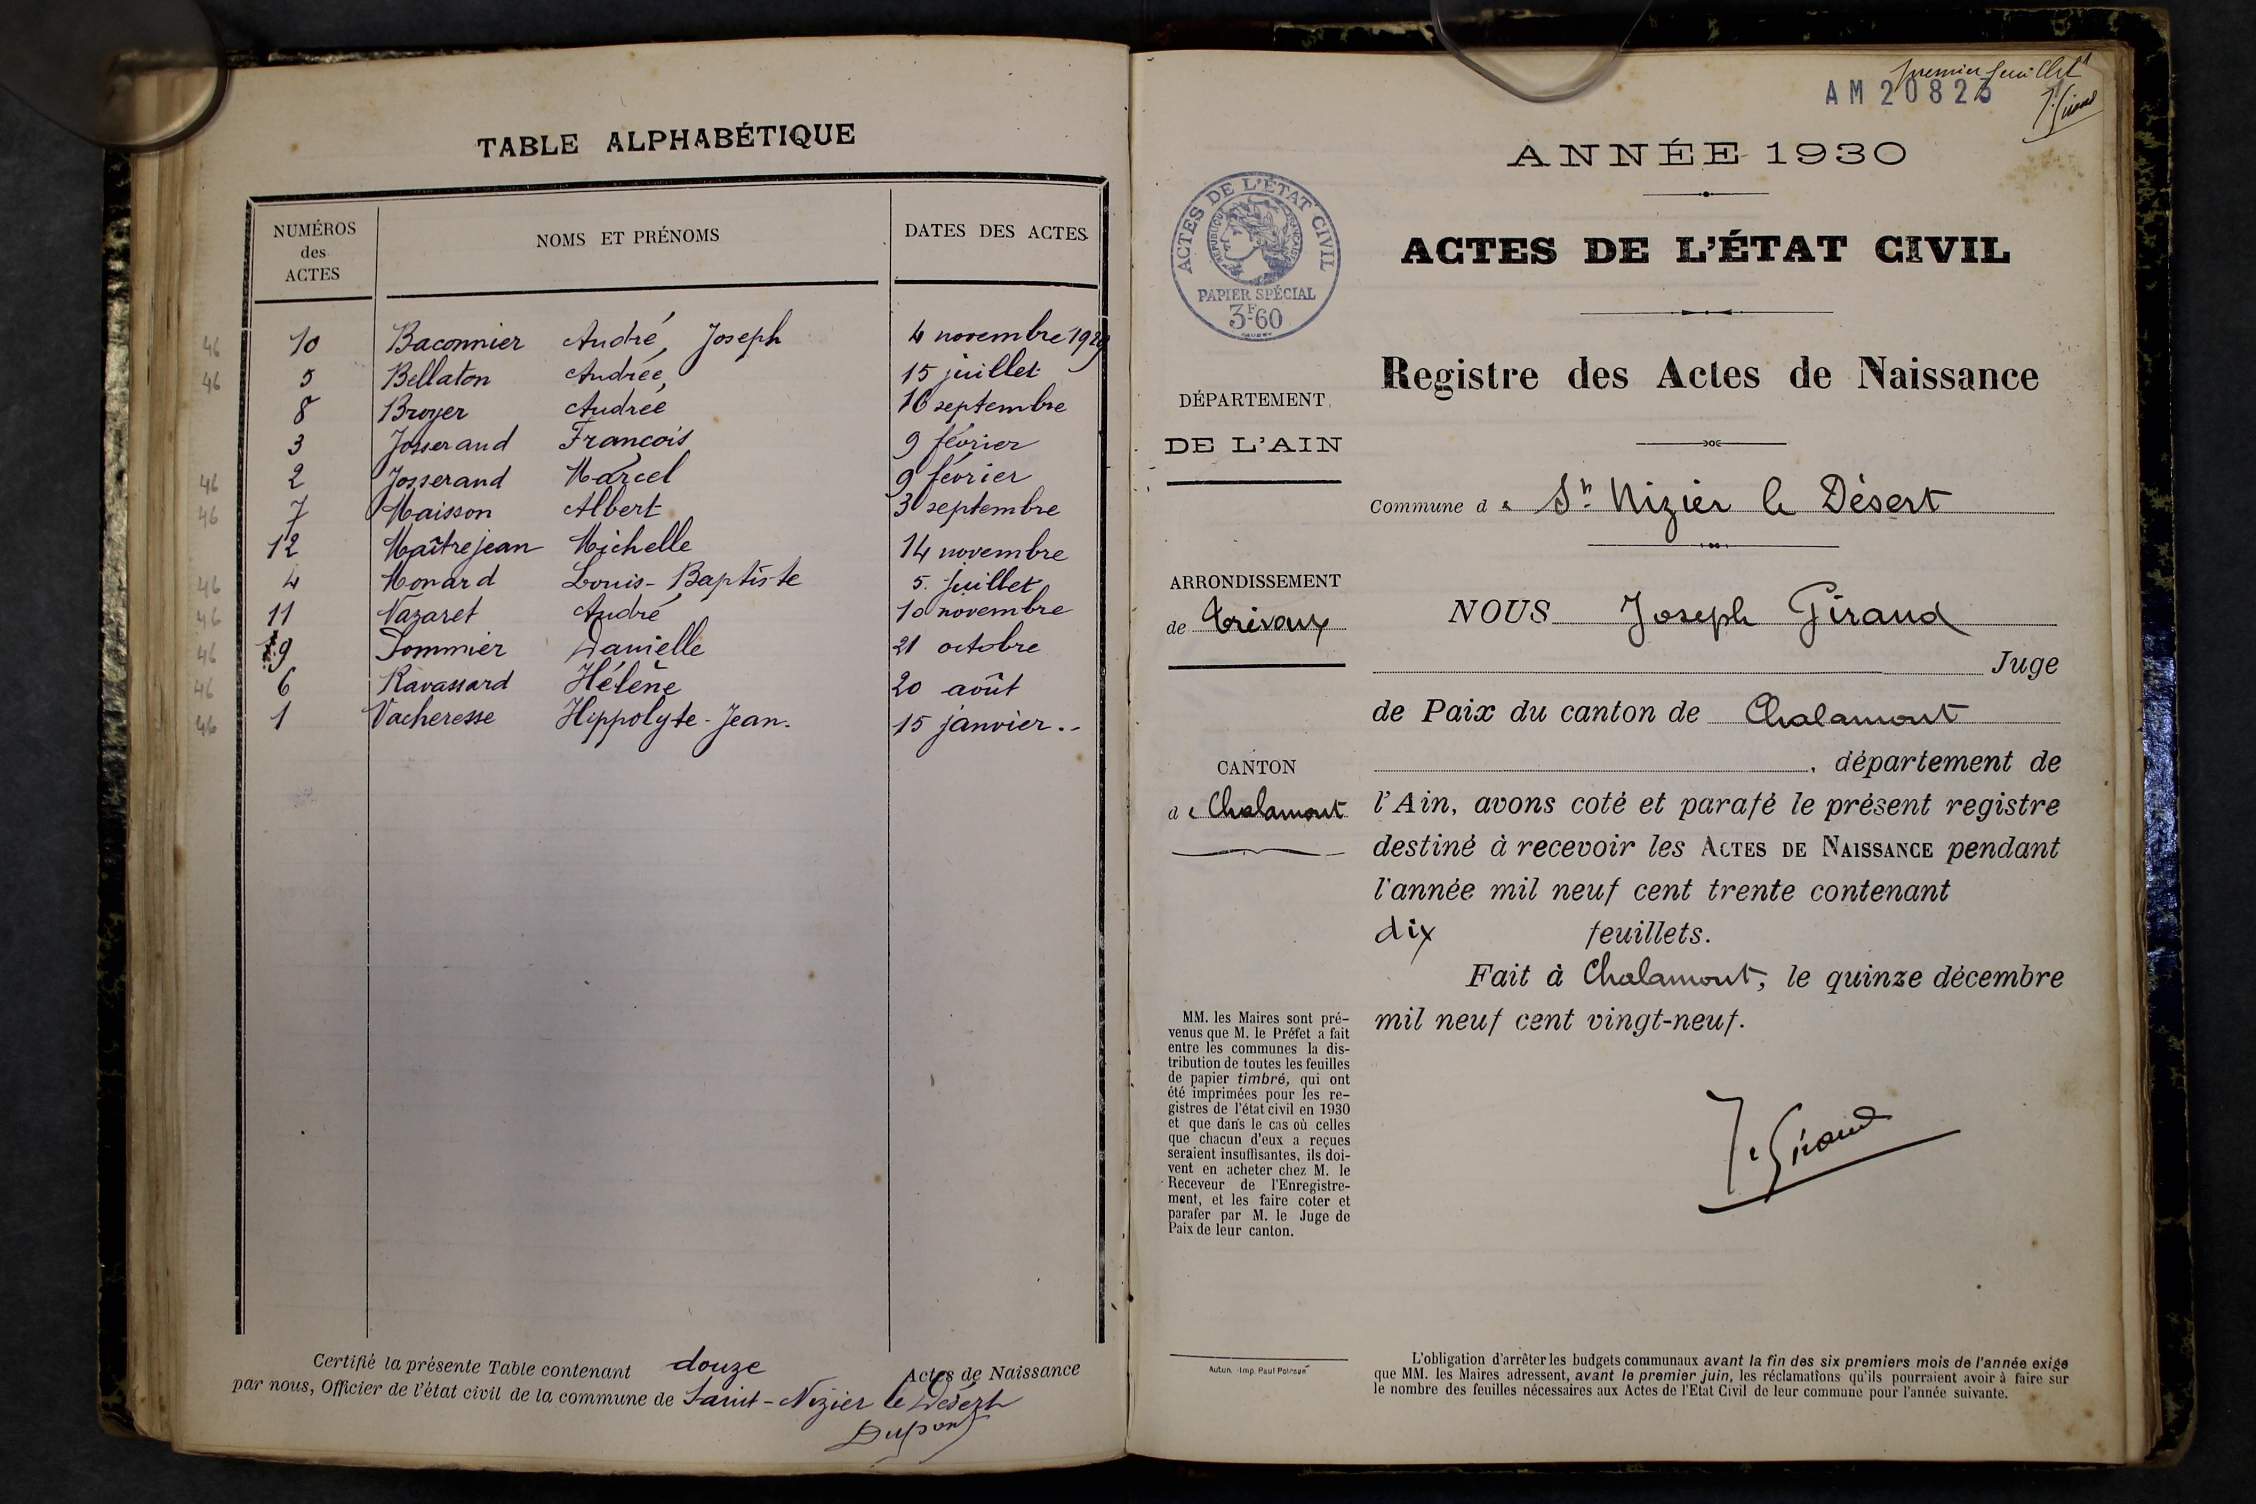 TABLE ALPHABÉTIQUE
NUMÉROS des ACTES NOMS ET PRÉNOMS DATES DES ACTES
46 10 Baconnier André, Joseph 4 novembre 1929
46 5 Bellaton Andrée, 15 juillet
8 Broyer Andrée 16 septembre
3 Josserand François 9 février
46 2 Josserand Marcel 9 février
46 7 Maisson Albert 30 septembre
12 Maîtrejean Michelle 14 novembre
46 4 Monard Louis-Baptiste 5. juillet
46 11 Nazaret André 10 novembre
46 9 Pommier Danielle 21 octobre
46 6 Ravassard Hélène 20 août
46 1 Vacheresse Hippolyte-Jean. 15 janvier..
Certifié la présente Table contenant douze Actes de Naissance
par nous, Officier de l'état civil de la commune de Saint-Nizier le Désert
Dupont
premier feuillet
AM 20823
J. Giraud
ANNÉE 1930
ACTES DE L'ÉTAT CIVIL
RÉPUBLIQUE FRANÇAISE
PAPIER SPÉCIAL
3F60
ACTES DE L'ÉTAT CIVIL
Registre des Actes de Naissance
DÉPARTEMENT
DE L'AIN
Commune de St Nizier le Désert
ARRONDISSEMENT
de Trévoux
NOUS Joseph Giraud
Juge
de Paix du canton de Chalamont
, département de
CANTON
de Chalamont
l'Ain, avons coté et parafé le présent registre
destiné à recevoir les ACTES DE NAISSANCE pendant
l'année mil neuf cent trente contenant
dix feuillets.
Fait à Chalamont, le quinze décembre
mil neuf cent vingt-neuf.
MM. les Maires sont pré-
venus que M. le Préfet a fait
entre les communes la dis-
tribution de toutes les feuilles
de papier timbré, qui ont
été imprimées pour les re-
gistres de l'état civil en 1930
et que dans le cas où celles
que chacun d'eux a reçues
seraient insuffisantes, ils doi-
vent en acheter chez M. le
Receveur de l'Enregistre-
ment, et les faire coter et
parafer par M. le Juge de
Paix de leur canton.
J. Giraud
Autun. Imp. Paul
L'obligation d'arrêter les budgets communaux avant la fin des six premiers mois de l'année exige
que MM. les Maires adressent, avant le premier juin, les réclamations qu'ils pourraient avoir à faire sur
le nombre des feuilles nécessaires aux Actes de l'Etat Civil de leur commune pour l'année suivante.